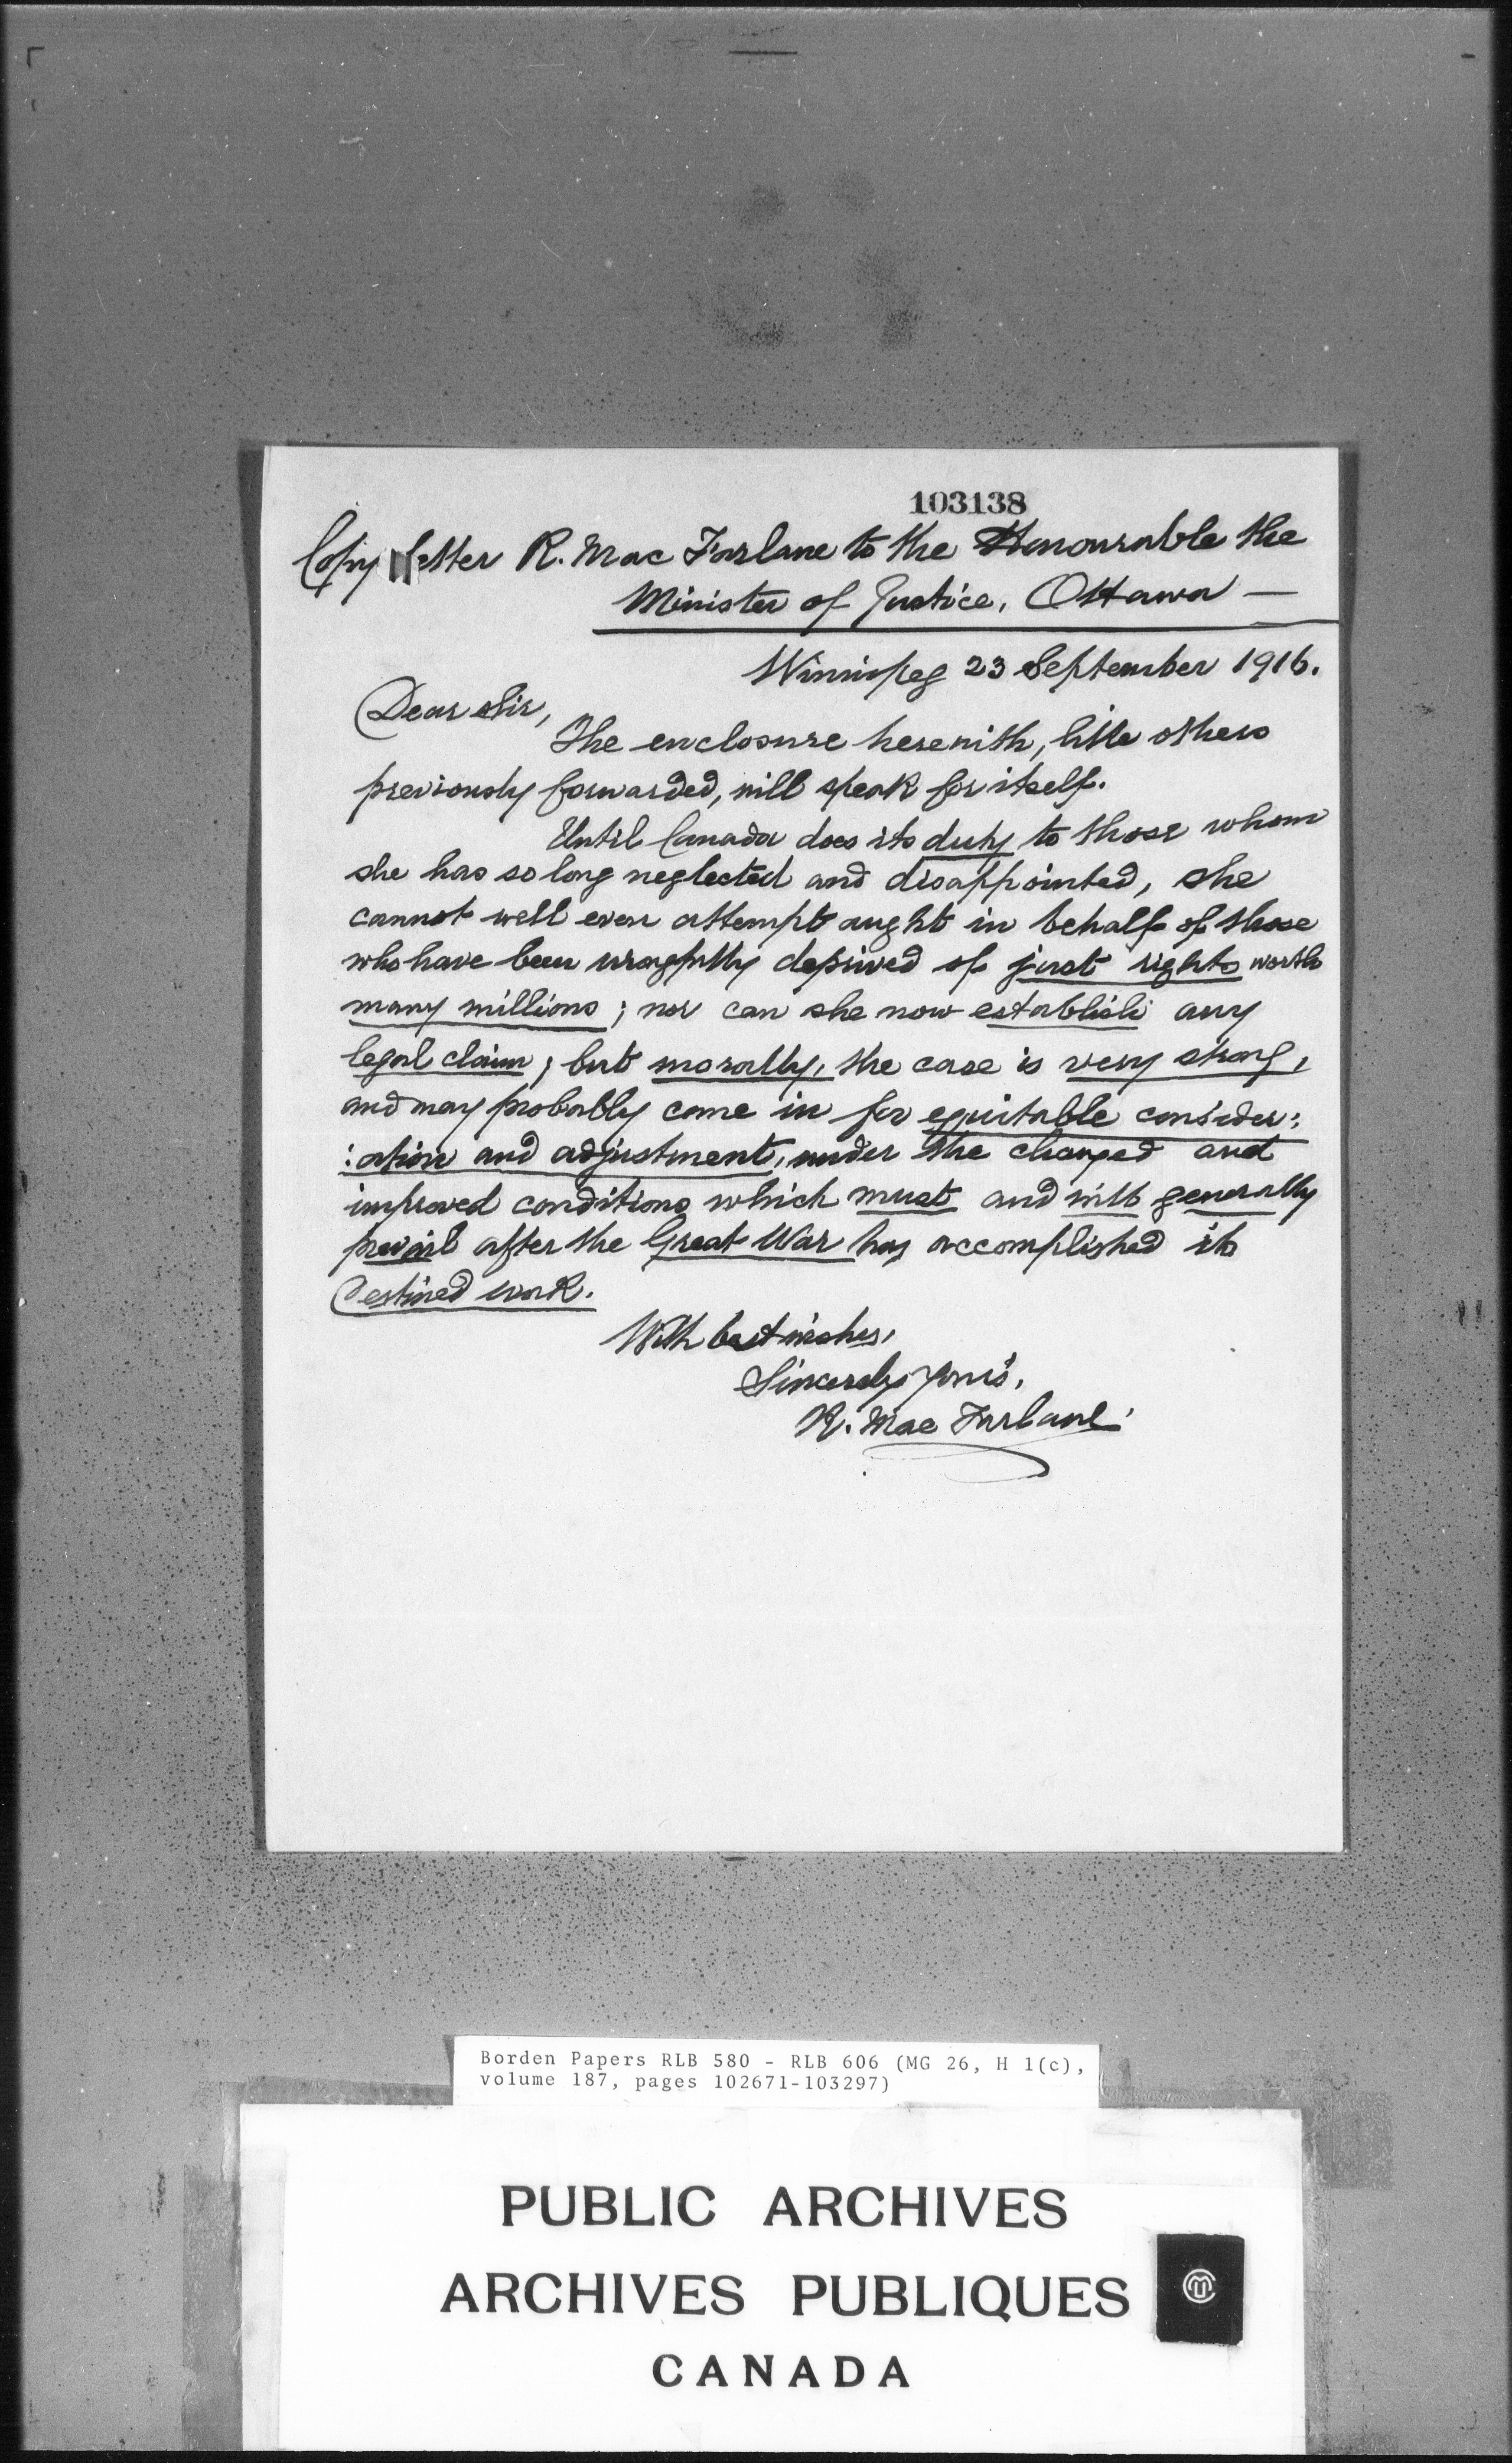 103138
Copy letter R. Mac Farlane to the Honourable the
Minister of Justice, Ottawa —
Winnipeg 23 September 1916.
Dear Sir,
The enclosure herewith, like others
previously forwarded, will speak for itself.
Until Canada does its duty to those whom
she has so long neglected and disappointed, she
cannot well even attempt aught in behalf of those
who have been wrongfully deprived of just rights worth
many millions; nor can she now establish any
legal claim; but morally, the case is very strong,
and may probably come in for equitable consider:
:ation and adjustment, under the changed and
improved conditions which must and will generally
prevail after the Great War has accomplished its
destined work.
With best wishes,
Sincerely yours,
R. Mac Farlane
Borden Papers RLB 580 - RLB 606 (MG 26, H 1(c),
volume 187, pages 102671-103297)
PUBLIC ARCHIVES
ARCHIVES PUBLIQUES
CANADA